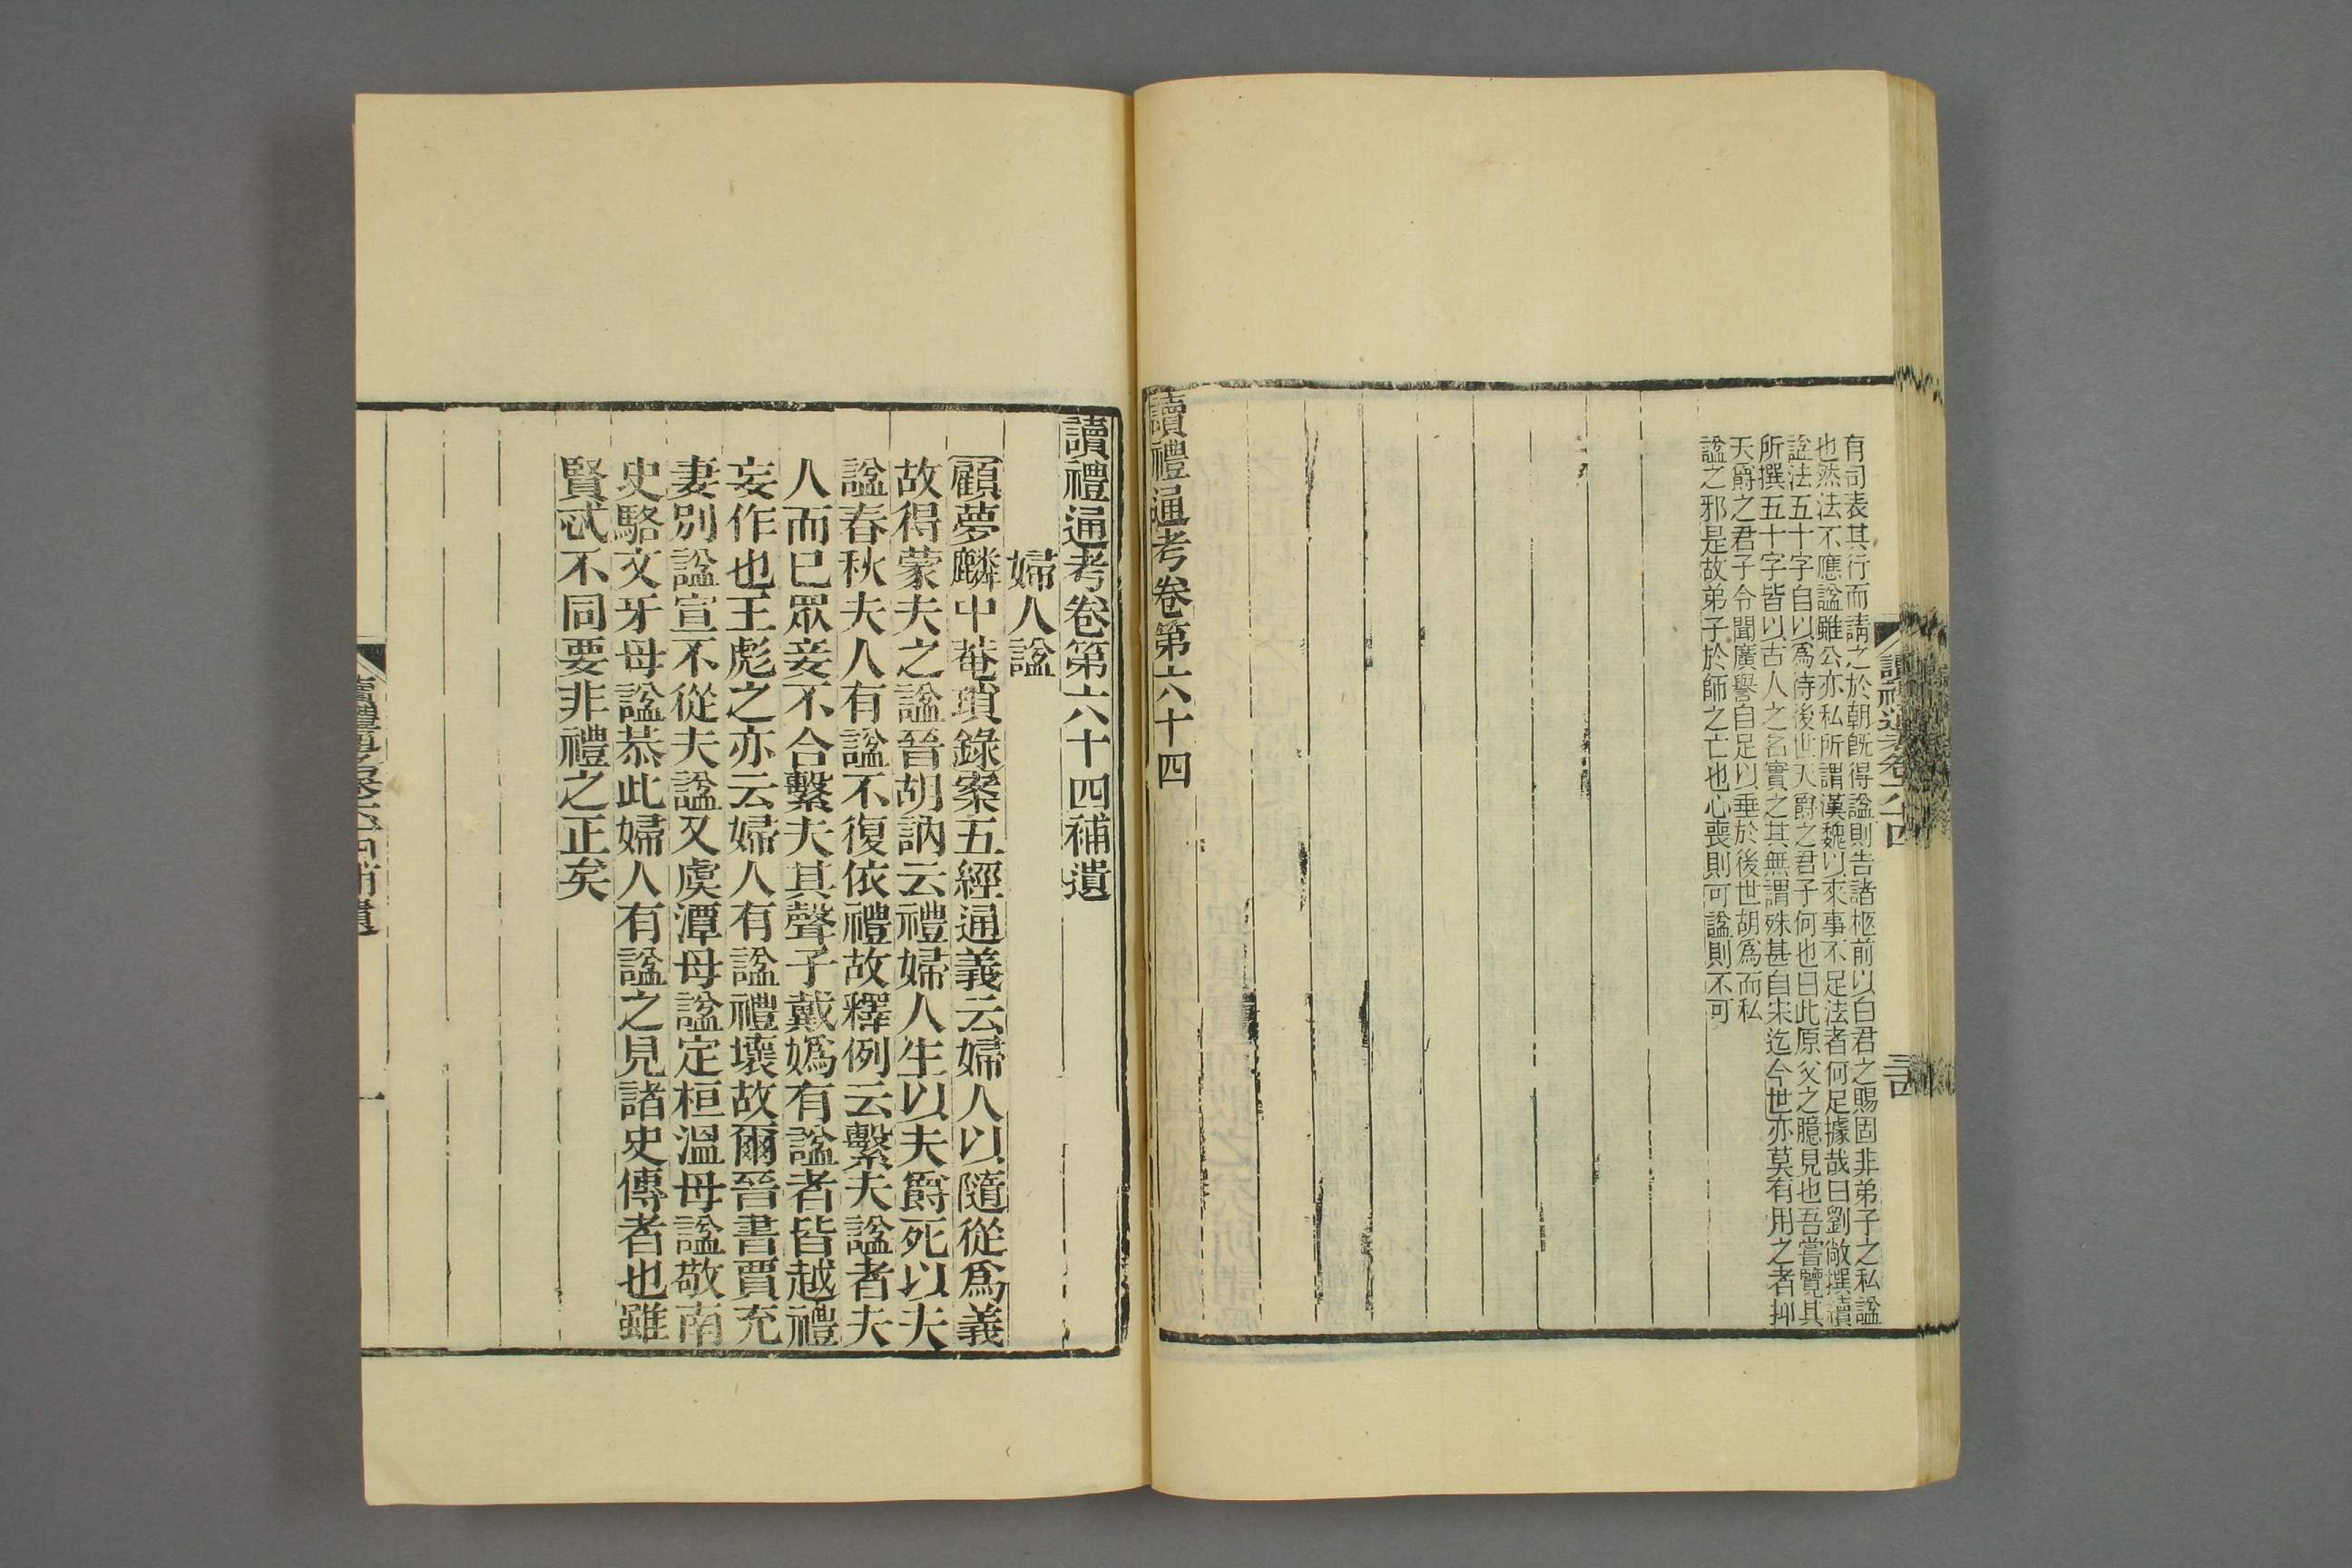 有司表其行而請之於朝旣得諡則告諸柩前以白君之賜固非弟子之私諡
也然法不應諡雖公亦私所謂漢魏以來事不足法者何足據哉曰劉敞撰續
諡法五十字自以爲待後世天爵之君子何也曰此原父之臆見也吾嘗覽其
所撰五十字皆以古人之名實之其無謂殊甚自宋迄今世亦莫有用之者抑
天爵之君子令聞廣譽自足以垂於後世胡爲而私
諡之邪是故弟子於師之亡也心喪則可諡則不可
讀禮通考卷第六十四
讀禮通考卷六十四
讀禮通考卷第六十四補遺
婦人諡
顧夢麟中菴瑣錄案五經通義云婦人以隨從爲義
故得蒙夫之諡晉胡訥云禮婦人生以夫爵死以夫
諡春秋夫人有諡不復依禮故釋例云繫夫諡者夫
人而已眾妾不合繫夫其聲子戴嬀有諡者皆越禮
妄作也王彪之亦云婦人有諡禮壞故爾晉書賈充
妻別諡宣不從夫諡又虞潭母諡定桓溫母諡敬南
史駱文牙母諡恭此婦人有諡之見諸史傳者也雖
賢忒不同要非禮之正矣
一